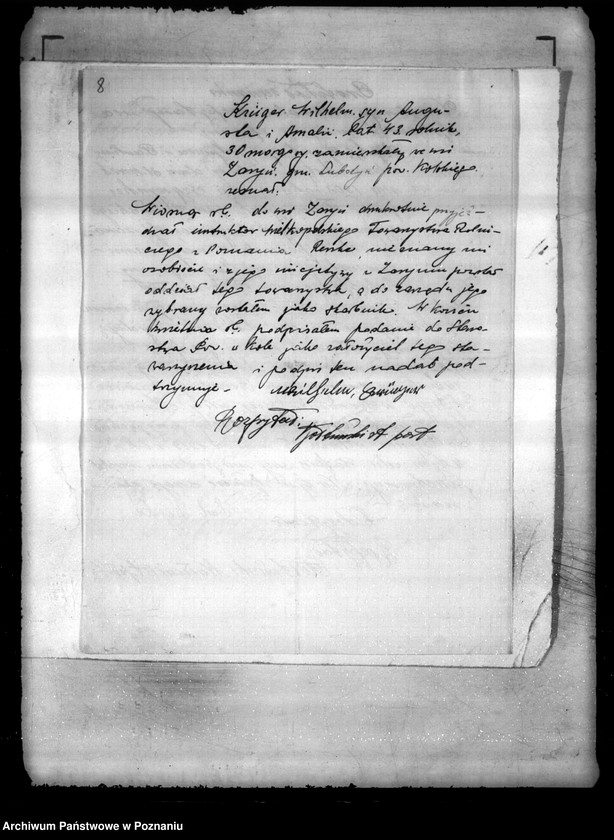 8
Krüger Wilhelm, syn Augu-
sta i Amalii, lat 43, rolnik,
30 morgowy, zamieszkały we wsi
Zaryń, gm. Lubotyń pow. Kolskiego
zeznał:
Wiosną rb. do wsi Zaryń dwukrotnie przyjeż-
dżał instruktor Wielkopolskiego Towarzystwa Rolni-
czego z Poznania Renke, nieznany mi
osobiście i z jego inicjatywy w Zaryniu powstał
oddział tego towarzystwa, a do zarządu jego
wybrany zostałem jako skarbnik. W końcu
kwietnia rb. podpisałem podanie do Staro-
stwa Pow. w Kole jako założyciel tego sto-
warzyszenia i podpis ten nadal pod-
trzymuję.- Wilhelm,
st. post
Archiwum Państwowe w Poznaniu